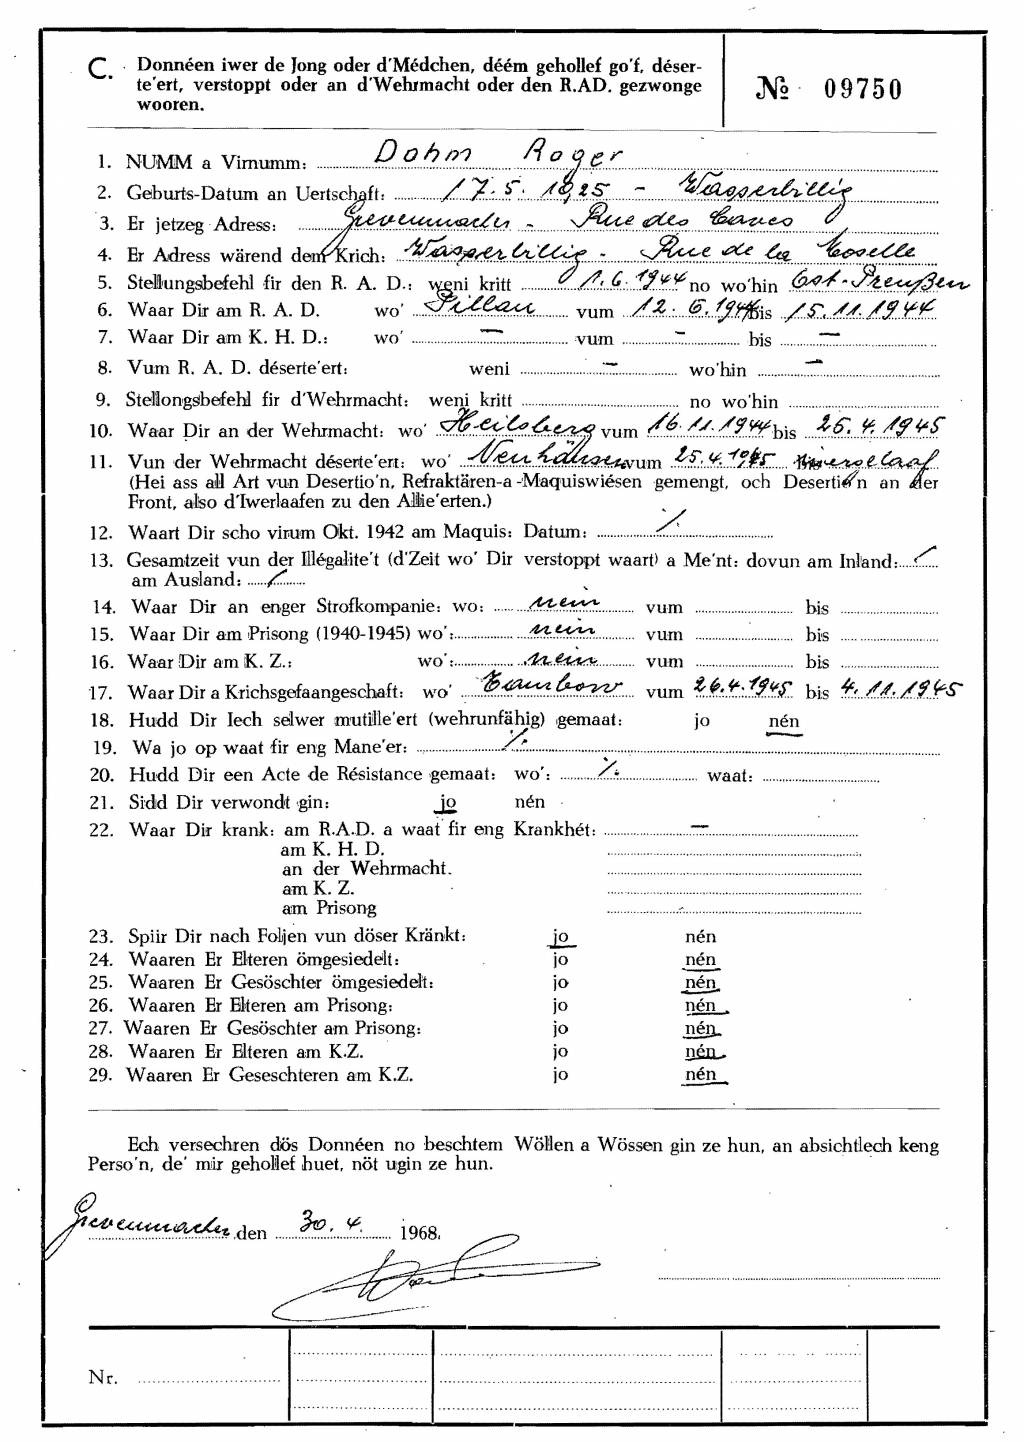 C. Donnéen iwer de Jong oder d'Médchen, déém gehollef go'f, déser-
te'ert, verstoppt oder an d'Wehrmacht oder den R.AD. gezwonge
wooren.
№ 09750
1. NUMM a Virnumm: Dohm Roger
2. Geburts-Datum an Uertschaft: 17.5.1925 - Wasserbillig
3. Er jetzeg Adress: Grevenmacher - Rue des Caves
4. Er Adress wärend dem Krich: Wasserbillig - Rue de la Moselle
5. Stellungsbefehl fir den R. A. D.: weni kritt 1.6.1944 no wo'hin Ost-Preußen
6. Waar Dir am R. A. D. wo' Pillau vum 12.6.1944 bis 15.11.1944
7. Waar Dir am K. H. D.: wo' — vum — bis —
8. Vum R. A. D. déserte'ert: weni — wo'hin —
9. Stellongsbefehl fir d'Wehrmacht: weni kritt no wo'hin
10. Waar Dir an der Wehrmacht: wo' Heilsberg vum 16.11.1944 bis 25.4.1945
11. Vun der Wehrmacht déserte'ert: wo' Neuhäusen vum 25.4.1945
(Hei ass all Art vun Desertio'n, Refraktären-a-Maquiswiésen gemengt, och Desertio'n an der
Front, also d'Iwerlaafen zu den Allie'erten.)
12. Waart Dir scho virum Okt. 1942 am Maquis: Datum: ./.
13. Gesamtzeit vun der Illégalite't (d'Zeit wo' Dir verstoppt waart) a Me'nt: dovun am Inland: /
am Ausland: /
14. Waar Dir an enger Strofkompanie: wo: nein vum bis
15. Waar Dir am Prisong (1940-1945) wo': nein vum bis
16. Waar Dir am K. Z.: wo': nein vum bis
17. Waar Dir a Krichsgefaangeschaft: wo' Tambow vum 26.4.1945 bis 4.11.1945
18. Hudd Dir Iech selwer mutille'ert (wehrunfähig) gemaat: jo nén
19. Wa jo op waat fir eng Mane'er: ./.
20. Hudd Dir een Acte de Résistance gemaat: wo': ./. waat:
21. Sidd Dir verwondt gin: jo nén
22. Waar Dir krank: am R.A.D. a waat fir eng Krankhét: —
am K. H. D.
an der Wehrmacht.
am K. Z.
am Prisong
23. Spiir Dir nach Foljen vun döser Kränkt: jo nén
24. Waaren Er Elteren ömgesiedelt: jo nén
25. Waaren Er Gesöschter ömgesiedelt: jo nén
26. Waaren Er Elteren am Prisong: jo nén
27. Waaren Er Gesöschter am Prisong: jo nén
28. Waaren Er Elteren am K.Z. jo nén
29. Waaren Er Geseschteren am K.Z. jo nén
Ech versechren dös Donnéen no beschtem Wöllen a Wössen gin ze hun, an absichtlech keng
Perso'n, de' mir gehollef huet, nöt ugin ze hun.
Grevenmacher, den 30.4. 1968.
Nr.